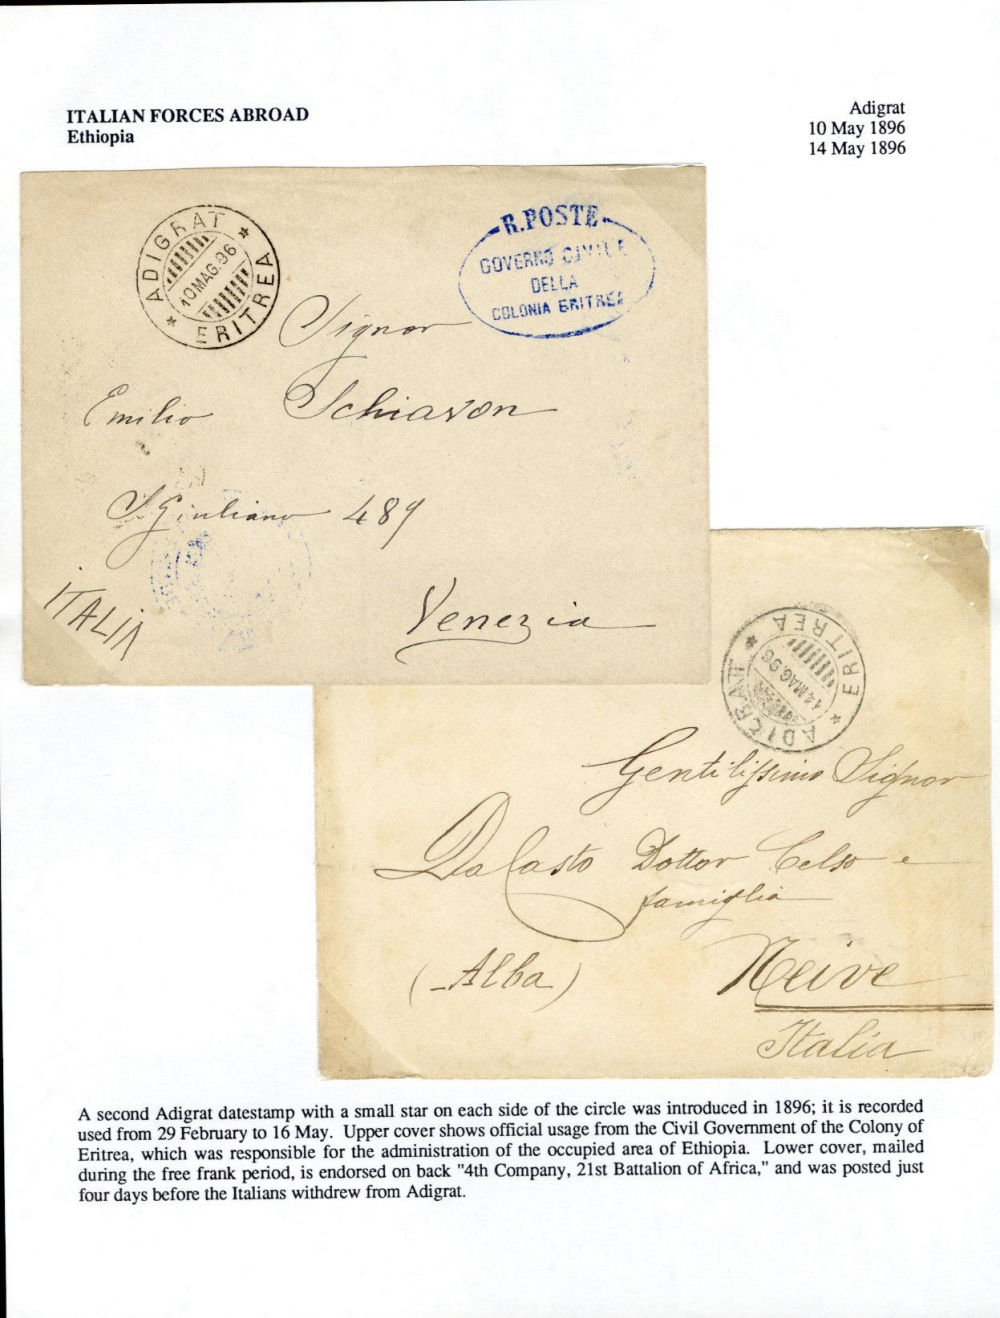 ITALIAN FORCES ABROAD
Ethiopia
Adigrat
10 May 1896
14 May 1896
ADIGRAT
10 MAG. 96
ERITREA
R. POSTE
GOVERNO CIVILE
DELLA
COLONIA ERITREA
Signor
Emilio Schiavon
S Giuliano 489
ITALIA
Venezia
ADIGRAT
14 MAG. 96
ERITREA
Gentilissimo Signor
Da Casto Dottor Celso e
famiglia
(Alba) Neive
Italia
A second Adigrat datestamp with a small star on each side of the circle was introduced in 1896; it is recorded
used from 29 February to 16 May. Upper cover shows official usage from the Civil Government of the Colony of
Eritrea, which was responsible for the administration of the occupied area of Ethiopia. Lower cover, mailed
during the free frank period, is endorsed on back "4th Company, 21st Battalion of Africa," and was posted just
four days before the Italians withdrew from Adigrat.